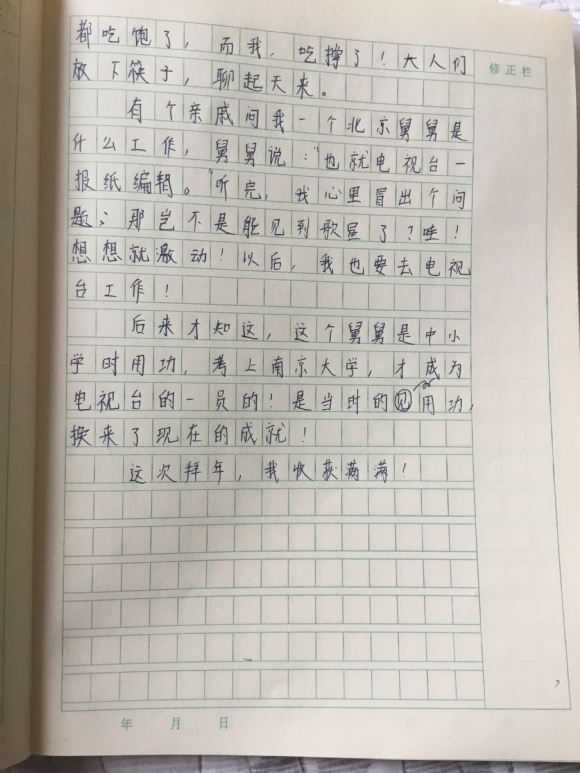 都吃饱了，而我，吃撑了！大人们
修正栏
放下筷子，聊起天来。
有个亲戚问我一个北京舅舅是
什么工作，舅舅说："也就电视台一
报纸编辑。"听完，我心里冒出个问
题：那岂不是能见到歌星了？哇！
想想就激动！以后，我也要去电视
台工作！
后来才知这，这个舅舅是中小
学时用功，考上南京大学，才成为
电视台的一员的！是当时的用功，
换来了现在的成就！
这次拜年，我收获满满！
年 月 日